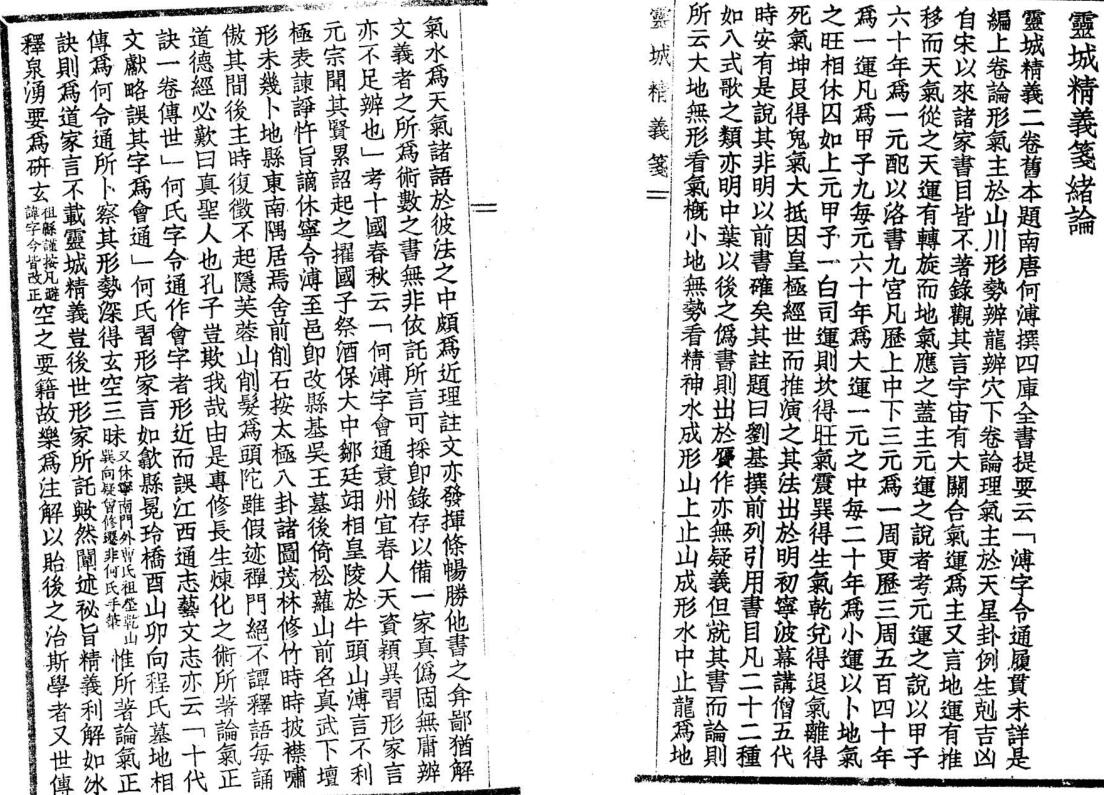 靈城精義箋緒論
靈城精義二卷舊本題南唐何溥撰四庫全書提要云「溥字令通履貫未詳是
編上卷論形氣主於山川形勢辨龍辨穴下卷論理氣主於天星卦例生剋吉凶
自宋以來諸家書目皆不著錄觀其言宇宙有大關合氣運爲主又言地運有推
移而天氣從之天運有轉旋而地氣應之蓋主元運之說者考元運之說以甲子
六十年爲一元配以洛書九宮凡歷上中下三元爲一周更歷三周五百四十年
爲一運凡爲甲子九每元六十年爲大運一元之中每二十年爲小運以卜地氣
之旺相休囚如上元甲子一白司運則坎得旺氣震巽得生氣乾兌得退氣離得
死氣坤艮得鬼氣大抵因皇極經世而推演之其法出於明初寧波幕講僧五代
時安有是說其非明以前書確矣其註題曰劉基撰前列引用書目凡二十二種
如八式歌之類亦明中葉以後之僞書則出於贋作亦無疑義但就其書而論則
所云大地無形看氣概小地無勢看精神水成形山上止山成形水中止龍爲地
靈城精義箋
氣水爲天氣諸語於彼法之中頗爲近理註文亦發揮條暢勝他書之弇鄙猶解
文義者之所爲術數之書無非依託所言可採卽錄存以備一家真僞固無庸辨
亦不足辨也」考十國春秋云「何溥字會通袁州宜春人天資穎異習形家言
元宗聞其賢累詔起之擢國子祭酒保大中鄒廷翊相皇陵於牛頭山溥言不利
極表諫諍忤旨謫休寧令溥至邑卽改縣基吳王墓後倚松蘿山前名真武下壇
形未幾卜地縣東南隅居焉舍前削石按太極八卦諸圖茂林修竹時時披襟嘯
傲其間後主時復徵不起隱芙蓉山削髮爲頭陀雖假迹禪門絕不譚釋語每誦
道德經必歎曰真聖人也孔子豈欺我哉由是專修長生煉化之術所著論氣正
訣一卷傳世」何氏字令通作會字者形近而誤江西通志藝文志亦云「十代
文獻略誤其字爲會通」何氏習形家言如歙縣晃玲橋酉山卯向程氏墓地相
傳爲何令通所卜察其形勢深得玄空三昧又休寧南門外曹氏祖塋乾山巽向疑曾修遷非何氏手筆惟所著論氣正
訣則爲道家言不載靈城精義豈後世形家所託歟然闡述秘旨精義利解如冰
釋泉湧要爲硏玄祖緜謹按凡避諱字今皆改正空之要籍故樂爲注解以貽後之治斯學者又世傳